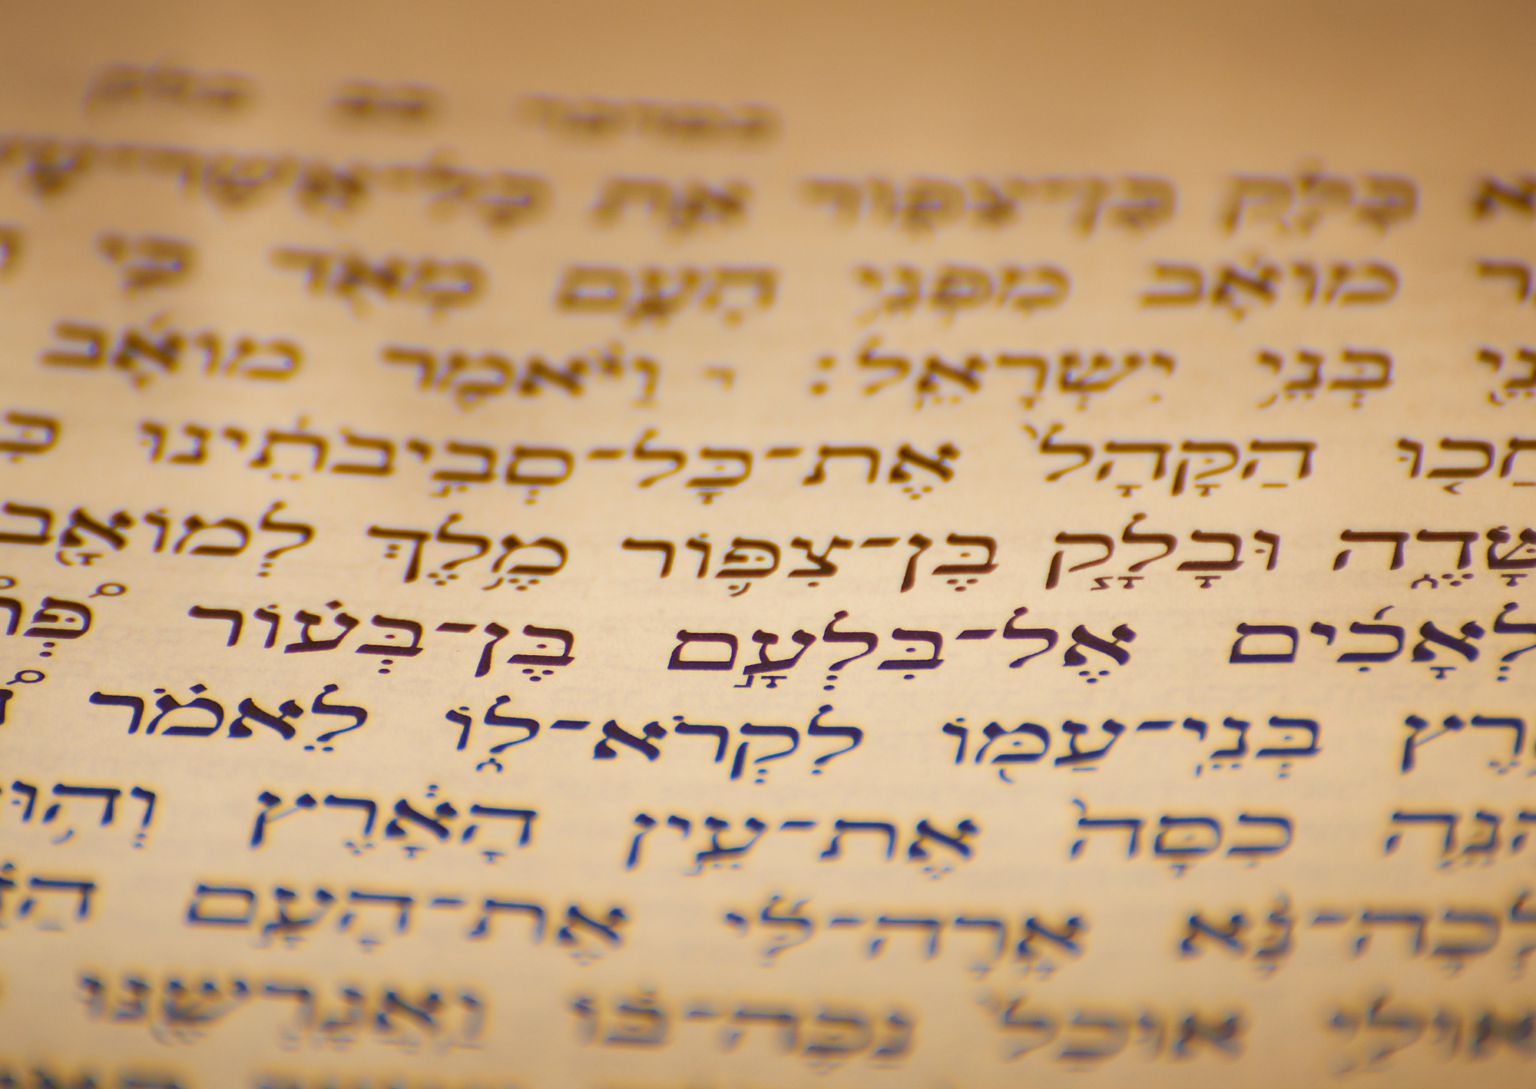 במדבר כב בלק
בָּלָ֖ק בֶּן־צִפּ֑וֹר אֵ֛ת כׇּל־אֲשֶׁר־
מוֹאָ֜ב מִפְּנֵ֥י הָעָ֛ם מְאֹ֖ד כִּ֣י
בְּנֵ֥י יִשְׂרָאֵֽל׃ וַיֹּ֨אמֶר מוֹאָ֜ב
הַקָּהָל֙ אֶת־כָּל־סְבִ֣יבֹתֵ֔ינוּ
הַשָּׂדֶ֑ה וּבָלָ֧ק בֶּן־צִפּ֛וֹר מֶ֥לֶךְ לְמוֹאָ֖ב
אֶל־בִּלְעָ֣ם בֶּן־בְּע֗וֹר
בְּנֵי־עַמּ֖וֹ לִקְרֹא־ל֑וֹ לֵאמֹ֗ר
הִנֵּ֤ה כִסָּה֙ אֶת־עֵ֣ין הָאָ֔רֶץ
לְכָה־נָּ֜א אָֽרָה־לִּ֣י אֶת־הָעָ֣ם
אוּלַ֤י אוּכַל֙ נַכֶּה־בּ֔וֹ וַאֲגָרְשֶׁ֖נּוּ